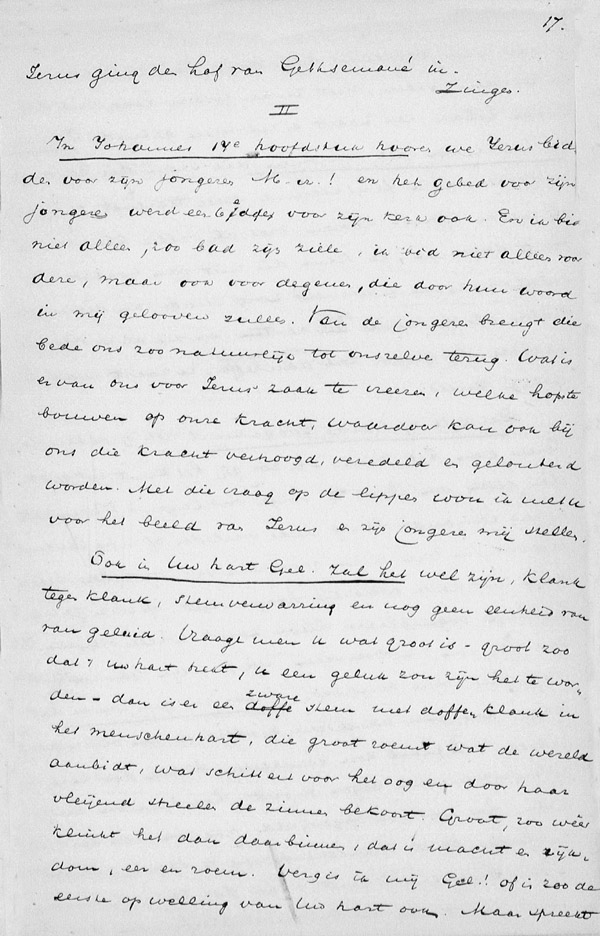 17.
Jezus ging den hof van Gethsemané in.
Zingen.
II
In Johannes 17e hoofdstuk hooren we Jezus bid-
den voor zijn jongeren M. 
 en het gebed voor zijn
jongeren werd een bidden voor zijn kerk ook. En ik bid
niet alleen, zoo bad zijn ziele, ik bid niet alleen voor
deze, maar ook voor degenen, die door hun woord
in mij gelooven zullen. Van de jongeren brengt die
bede ons zoo natuurlijk tot onszelve terug. Wat is
er van ons voor Jezus' zaak te vreezen, welke hope te
bouwen op onze kracht, waardoor kan ook bij
ons die kracht verhoogd, veredeld en gelouterd
worden. Met die vraag op de lippen wou ik met u
voor het beeld van Jezus en zijn jongeren mij stellen.
Ook in Uw hart Gel. zal het wel zijn, klank
tegen klank, stemverwarring en nog geen eenheid van
van geluid. Vraagt men u wat groot is - groot zoo
dat 't uw hart trekt, u een geluk zou zijn het te wor-
den - dan is er een doffe zware stem met doffen klank in
het menschenhart, die groot roemt wat de wereld
aanbidt, wat schittert voor het oog en door haar
vleijend streelen de zinnen bekoort. Groot, zoo weer
klinkt het dan daarbinnen, dat is macht en rijk-
dom, eer en roem. Vergis ik mij Gel.! of is zoo de
eerste opwelling van Uw hart ook. Maar spreekt